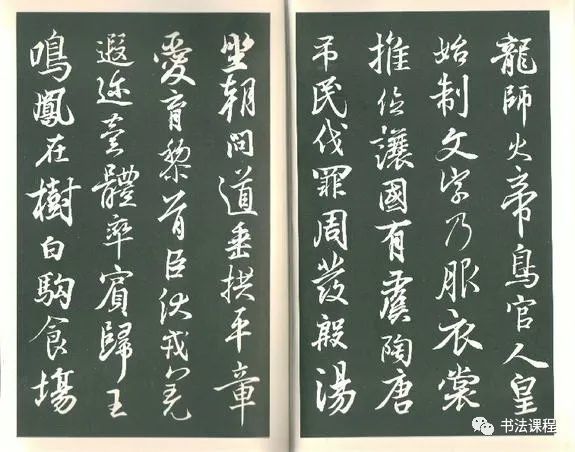 龍師火帝鳥官人皇
始制文字乃服衣裳
推位讓國有虞陶唐
吊民伐罪周發殷湯
坐朝問道垂拱平章
愛育黎首臣伏戎羌
遐迩壹體率賓歸王
鳴鳳在樹白駒食場
书法课程